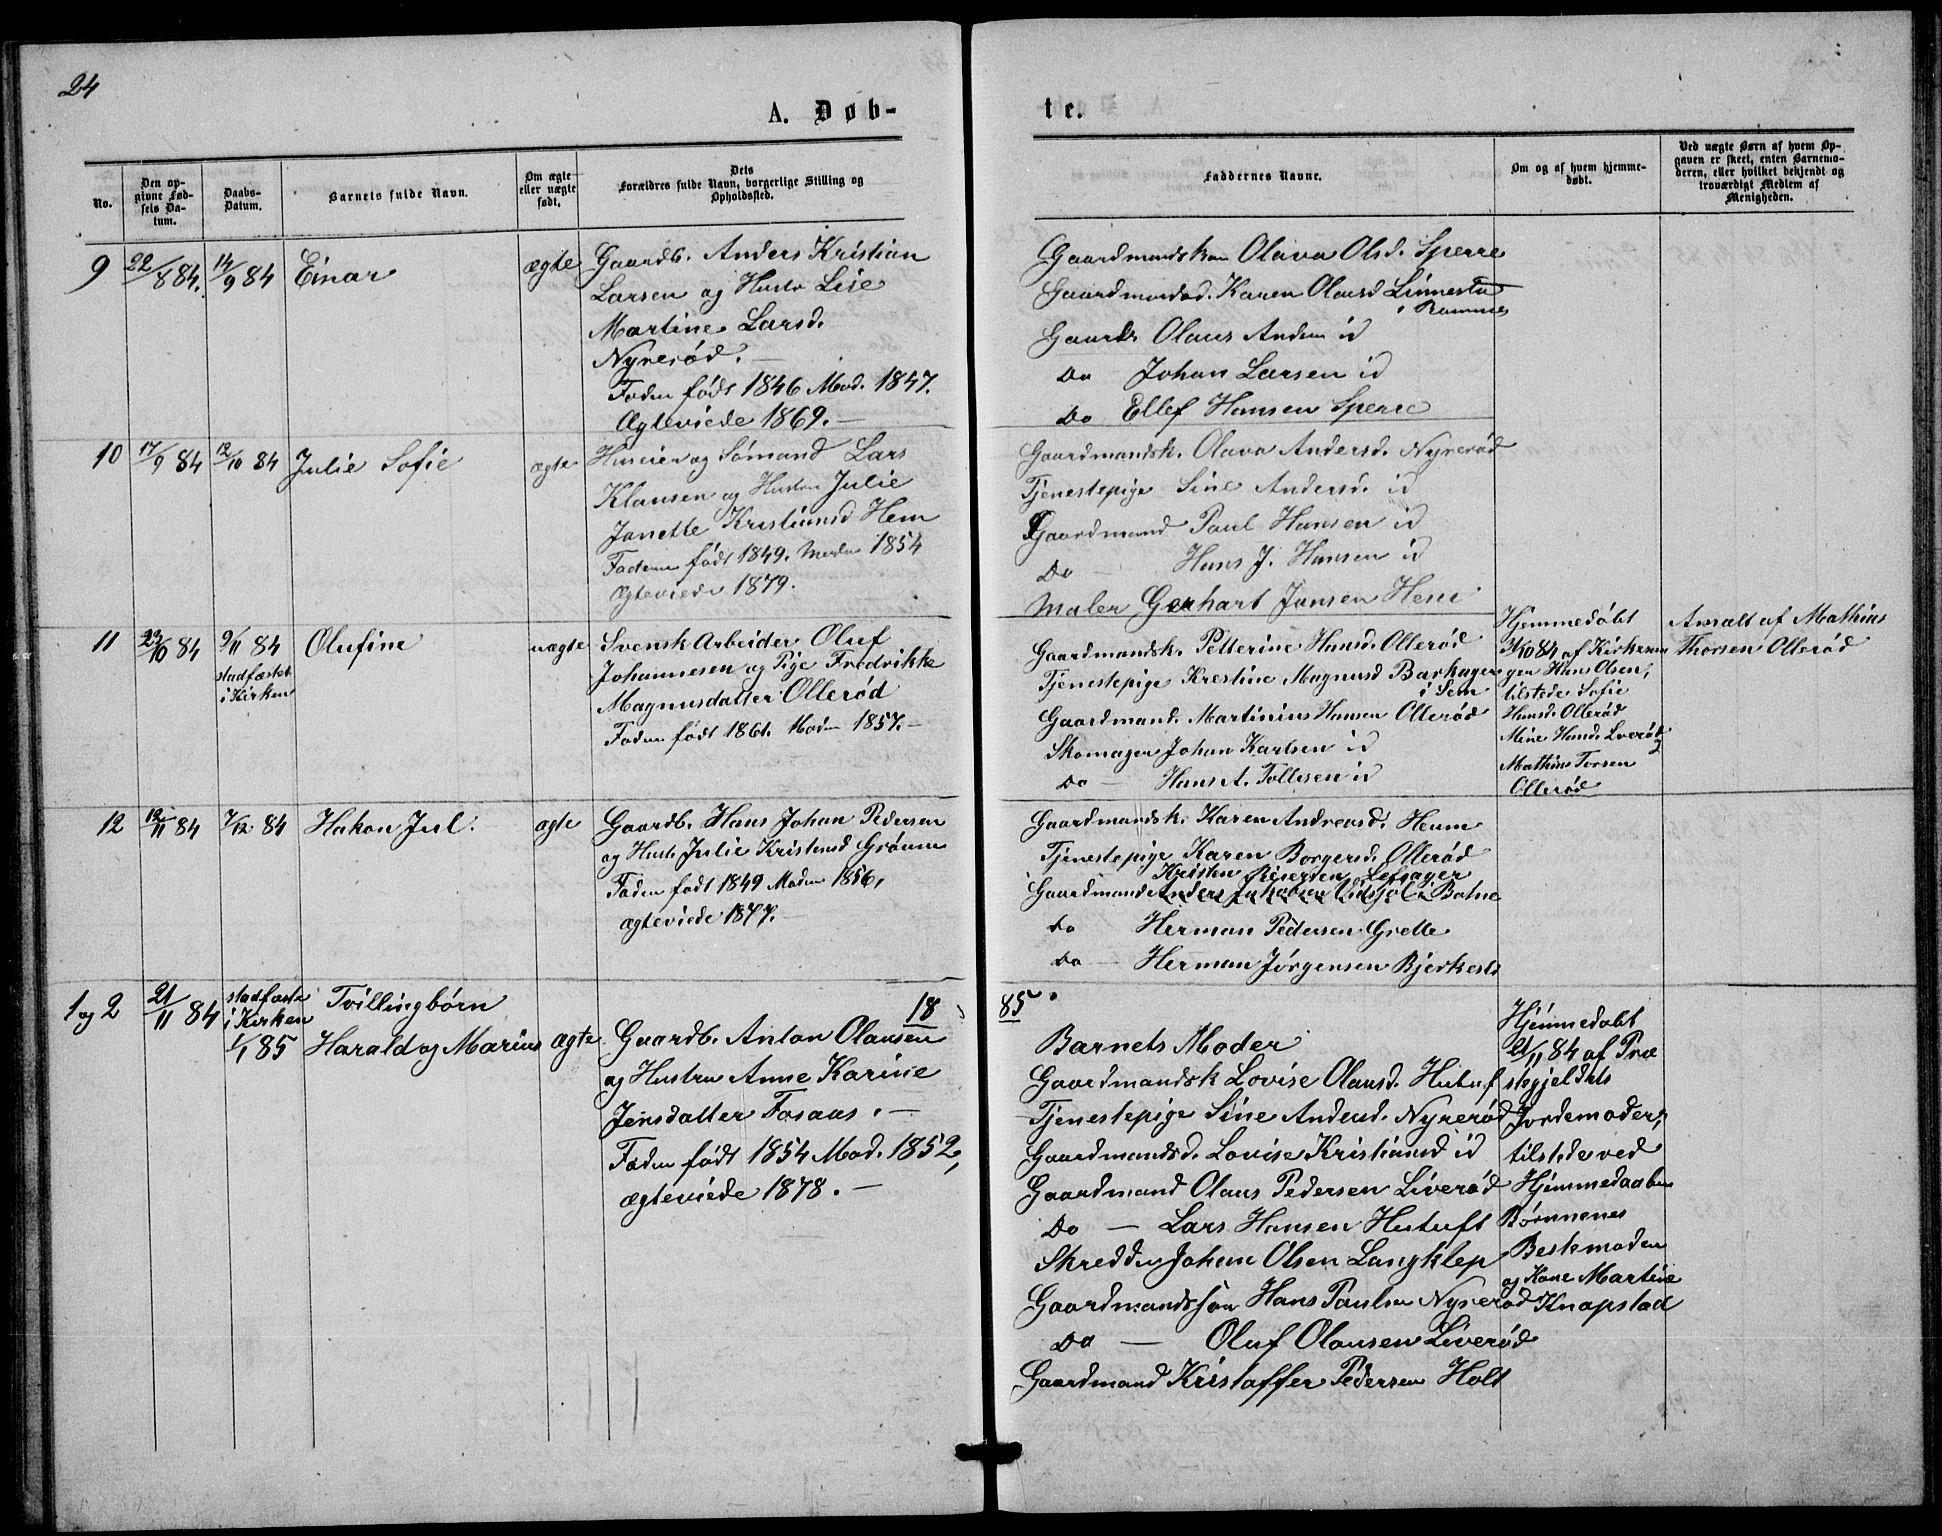 24
A. Døb-
te.
No.
Den op-
givne Fød-
sels Da-
tum.
Daabs-
Datum.
Barnets fulde Navn.
Om ægte
eller uægte
født.
Dets
Forældres fulde Navn, borgerlige Stilling og
Opholdssted.
Faddernes Navne.
Om og af hvem hjemme-
døbt.
Ved uægte Børn af hvem Op-
gaven er skeet, enten Barnemo-
deren, eller hvilket bekjendt og
troværdigt Medlem af
Menigheden.
9
22/8 84.
14/9 84
Einar
ægte
Gaardb. Anders Kristian
Larsen og Hustr Lise
Martine Larsd.
Nyrerød. —
Faden født 1846 Mod. 1847.
Ægteviede 1869. —
Gaardmandskon Olava Olsd. Sperre
Gaardmandsd. Karen Olausd Linnestad
i Ramnes
Gaardb Olaus Andsen id
Do Johan Larsen id
Do Ellef Hansen Sperre
10
17/9 84
12/10 84
Julie Sofie
ægte
Huseier og Sømand Lars
Klausen og Hustru Julie
Janette Kristiansd Hem
Faderen født 1849. Moder 1854
Ægteviede 1879.
Gaardmandsk. Olava Andersd. Nyrerød
Tjenestepige Sine Andersd. id
Gaardmand Paul Hansen id
Do — Hans J. Hansen id
Maler Gerhart Jansen Hem
11
29/10 84
9/11 84
stadfæstet
i Kirken
Olufine
uægte
Svensk Arbeider Oluf
Johannesen og Pige Fredrikke
Magnusdatter Ollerød
Faden født 1861. Moden 1857. —
Gaardmandsk. Petterine Hansd. Ollerød
Tjenestepige Krestine Magnusd Barkager
i Sem
Gaardmand. Martinius Hansen Ollerød
Skomager Johan Karlsen id
Do — Hans A. Tollesen id
Hjemmedøbt
31/10 84 af Kirkesan
gen Hans Olsen,
tilstede Sofie
Hansd. Ollerød
Mine Hansd. Lverød
Mathias Torsen
Ollerød
Anmælt af Mathias
Thorsen Ollerød
12
12/11 84
7/12 84
Hakon Jul.
ægte
Gaardb. Hans Johan Pedersen
og Hustr Julie Kristensd Grønn
Faden født 1849 Moden 1856,
ægteviede 1877. —
Gaardmandsk. Karen Andreasd. Heum
Tjenestepige Karen Borgersd. Ollerød
Kristen Lefsager
Gaardmand Anders Jakobsen i Botne
Do Herman Pedersen Grette
Do — Herman Jørgensen Bjerkest
18
85.
1 og 2
21/11 84
stadfæste
i Kirken
1/1 85
Tvillingbørn
Harald og Marius
ægte
Gaardb. Anton Olausen
og Hustru Anne Karine
Jensdatter Fosaas. —
Faden født 1854 Mod. 1852,
ægteviede 1878. —
Barnets Moder
Gaardmandsk Lovise Olausd. Hutuf
Tjenestepige Sine Andersd. Nyrerød
Gaardmandsd. Lovise Kristiansd id
Gaardmand Olaus Pedersen Liverød
Do — Lars Hansen Hutuft
Skredder Johan Olsen Langklep
Gaardmandssøn Hans Paulsen Nyrerød
Do — Oluf Olausen Liverød
Gaardmand Kristoffer Pedersen Holt
Hjemmedøbt
21/11 84 af Præ
stegjeldets
Jordemoder,
tilstede ved
Hjemmedaaben
Børnenes
Bestemoder
og Kone Martine
Knapstad